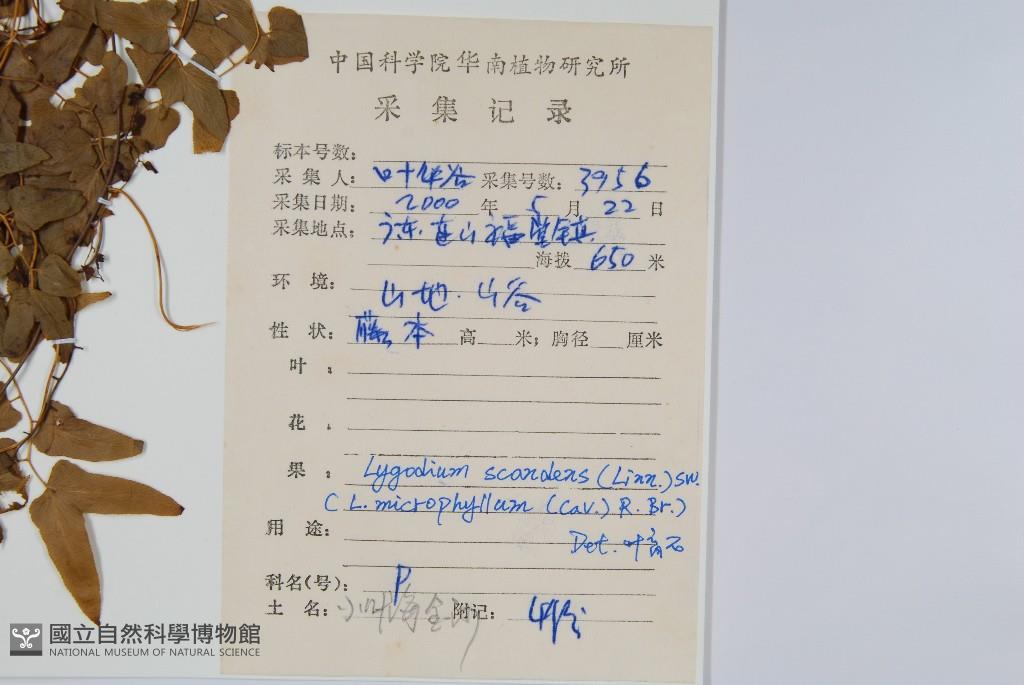 中国科学院华南植物研究所
采集记录
标本号数：
采集人：叶华谷 采集号数：3956
采集日期：2000年5月22日
采集地点：广东.连山福堂镇
海拨 650 米
环境：山地.山谷
性状：藤本 高 米；胸径 厘米
叶：
花：
果：Lygodium scandens (Linn.) Sw.
(L. microphyllum (Cav.) R. Br.)
用途：
Det. 叶育石
科名(号)：P
土名：小叶海金沙 附记：
國立自然科學博物館
NATIONAL MUSEUM OF NATURAL SCIENCE